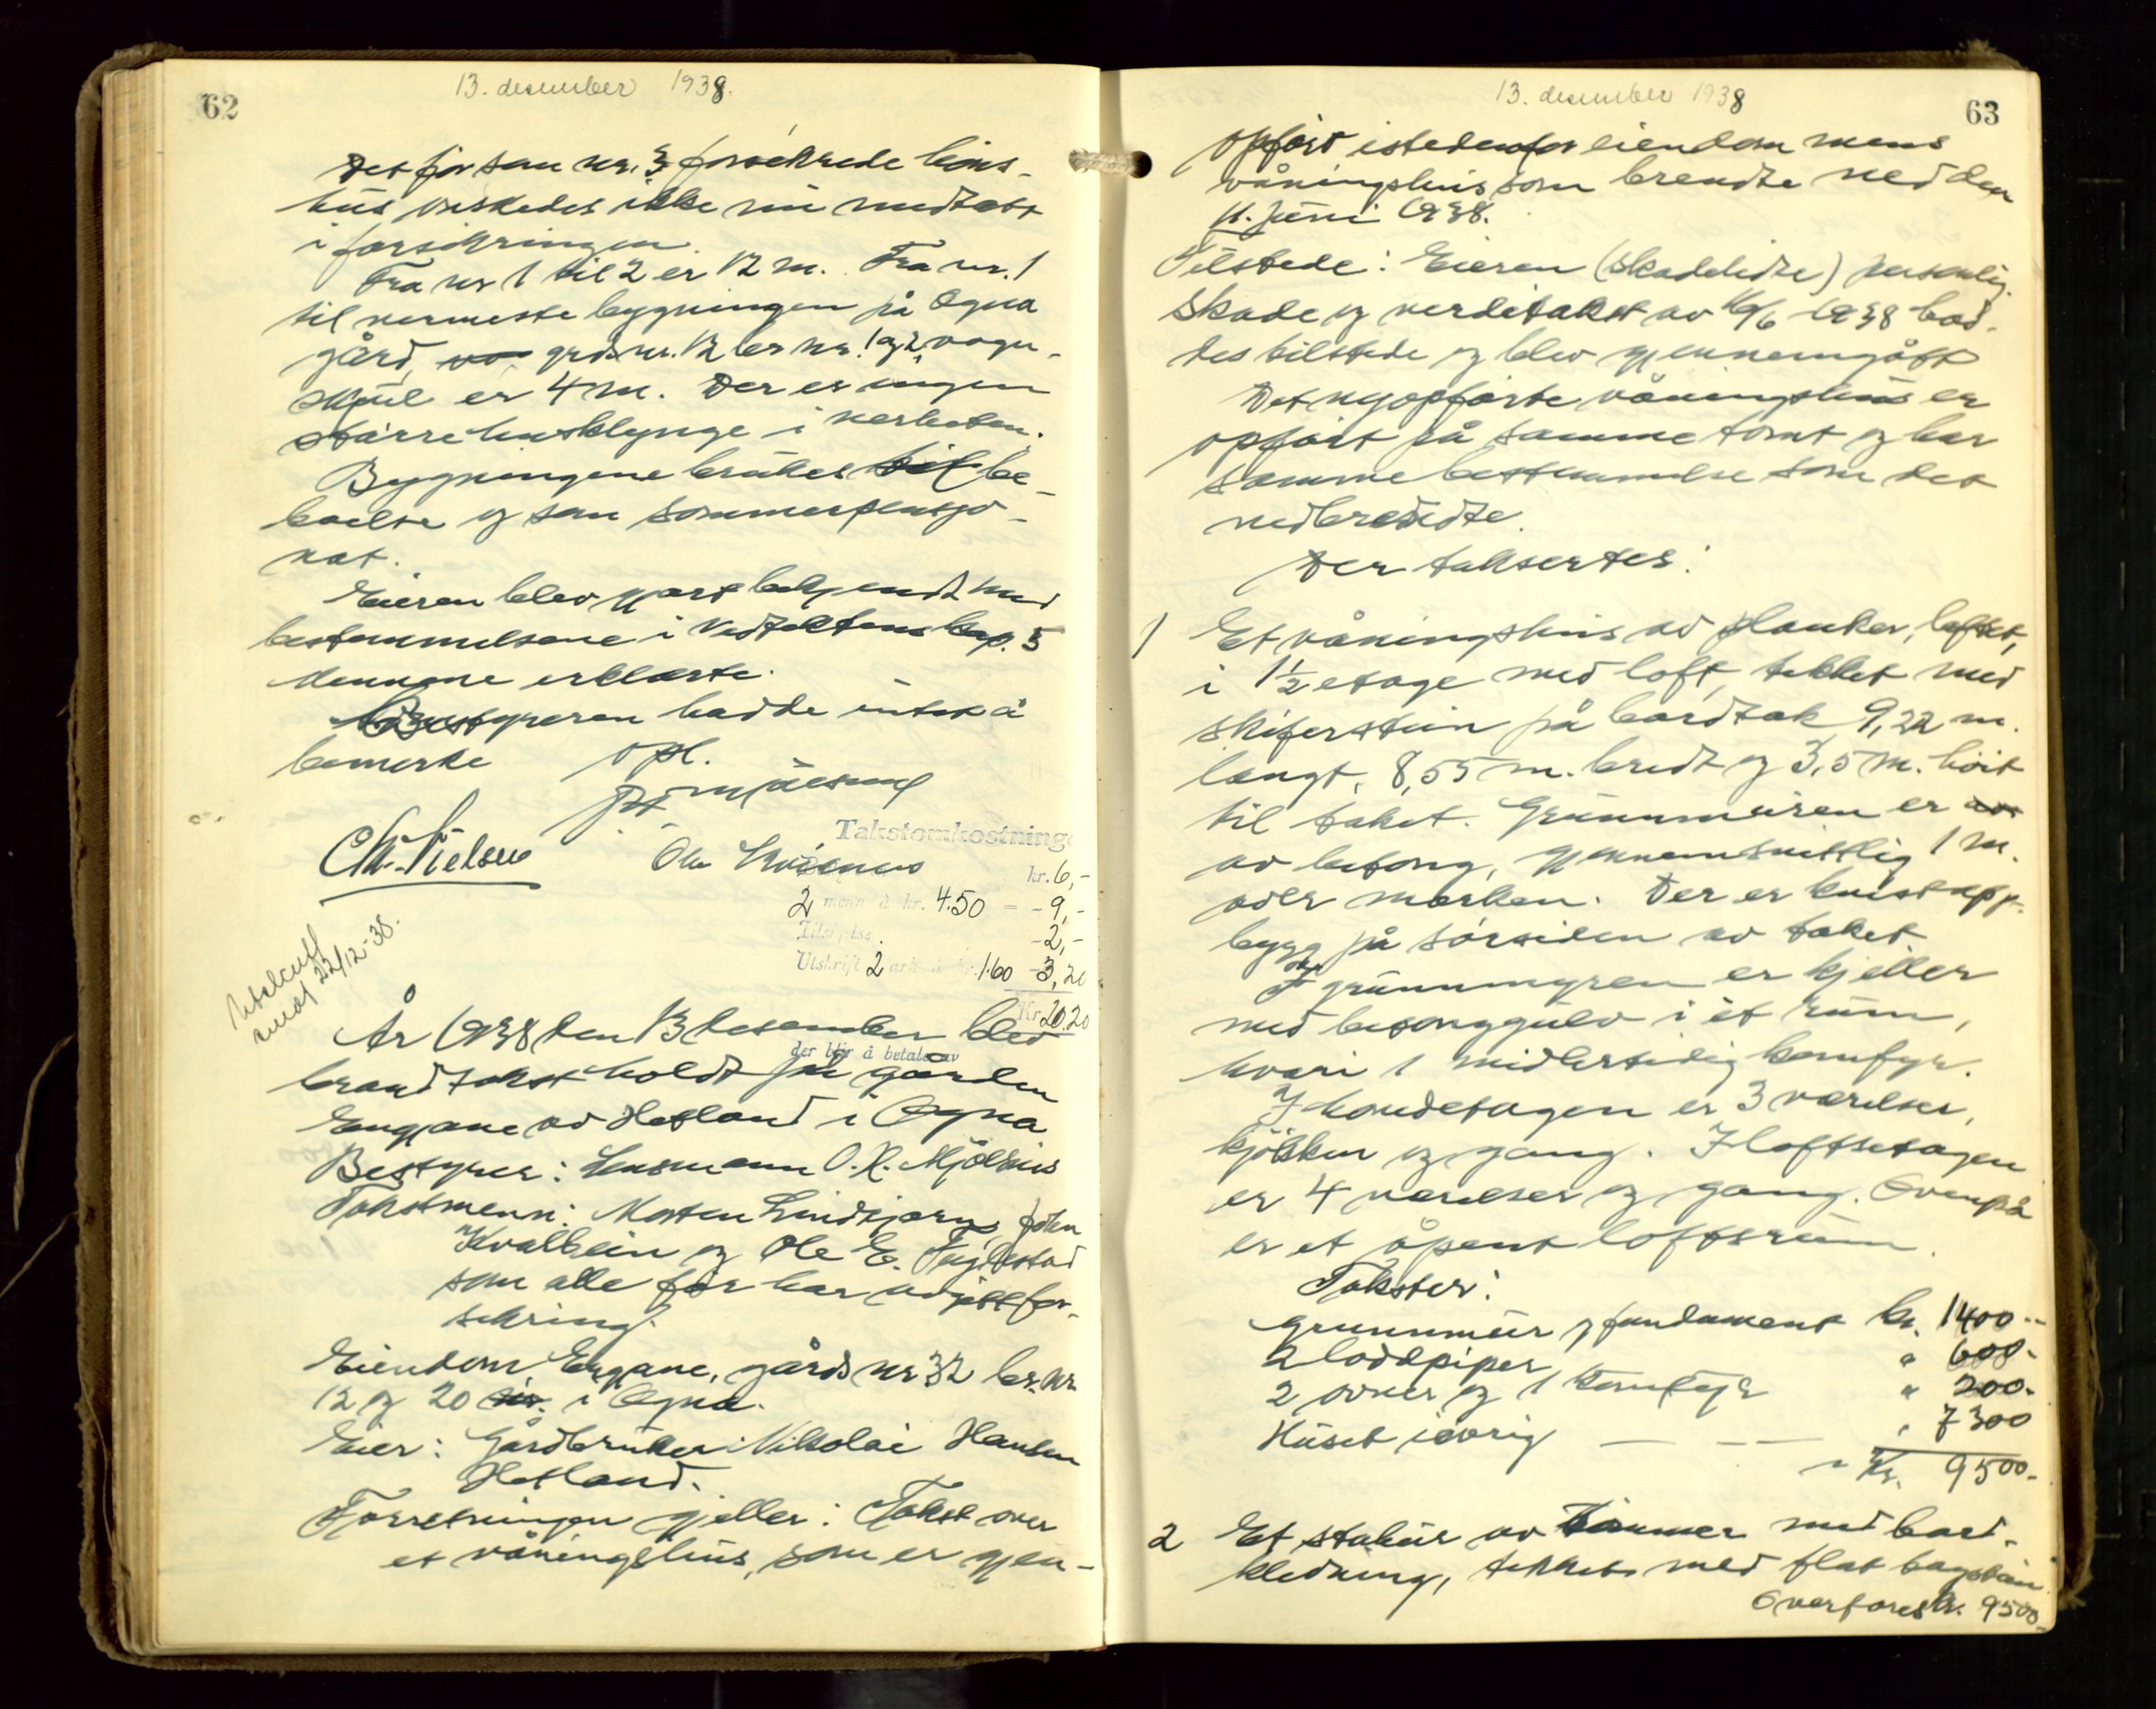 62
13. desember 1938.
Det før som nr. 3 forsikrede høns-
hus ønskedes ikke nu medtatt
i forsikringen.
Fra nr 1 til 2 er 12 m. Fra nr. 1
til nermeste bygningen på Ogna
gård, grdsnr. 12 br nr. 1 og 2, vogn-
skjul er 4 m. Der er ingen
større husklynge i nerheten.
Bygningene brukes til be-
boelse og som sommerpensjo-
nat.
Eieren blev gjort bekjendt med
bestemmelsene i Vedtektens kap. 5
dennene erklærte.
Bestyreren hadde intet å
bemerke
opl.
Chr. Nielsen
Takstomkostninge
kr. 6,-
2 menn à kr. 4.50 = - 9,-
Tilsigelse - 2,-
Utskrift 2 ark à kr. 1.60 - 3,20
Kr. 20.20
der blir å betale av
Utskrift
22/12-38.
År 1938 den 13 desember blev
brandtakst holdt på gården
Engjane av Hetland i Ogna
Bestyrer: Lensmann O. K. Mjölsnes
Takstmenn: Morten Lindtjørn, John
Kvalbein og Ole E. Fuglestad
som alle før har avgitt for-
sikring.
Eiendom Engjane, gårds nr 32 br. nr
12 og 20 i Ogna.
Eier: Gårdbruker Nikolai Hansen
Hetland.
Forretningen gjeller: Takst over
et våningshus, som er gjen-
13. desember 1938
63
opført istedenfor eiendommens
våningshus som brendte ned den
11. juni 1938.
Tilstede: Eieren (skadelidte) personlig.
Skade og verditakst av 16/6 1938 had-
des tilstede og blev gjennemgått
Det nyopførte våningshus er
opført på samme tomt og har
samme bestemmelse som det
nedbrendte.
Der taksertes:
1 Et våningshus av planker,
i 1½ etage med loft, tekket med
skiferstein på bordtak 9,22 m.
langt, 8,55 m. bredt og 3,5 m. höit
til taket. Grunnmuren er
av betong, gjennemsnittlig 1 m.
over marken. Der er kvistopp-
bygg på sörsiden av taket.
I grunnmyren er kjeller
med betonggulv i ét rum,
hvori 1 midlertidig komfyr.
I hovdetagen er 3 værelser,
kjökken og gang. I loftsetagen
er 4 værelser og gang. Ovenpå
er et åpent loftsrum.
Takster:
Grunnmur og fundament kr. 1400.-
2 loddpiper " 600.-
2 ovner og 1 komfyr " 200.-
Huset iøvrig — — — " 7300
Kr. 9500.-
2 Et stabur av tömmer med bord-
kledning, tekket med flat tagstein
Overføres kr. 9500.-